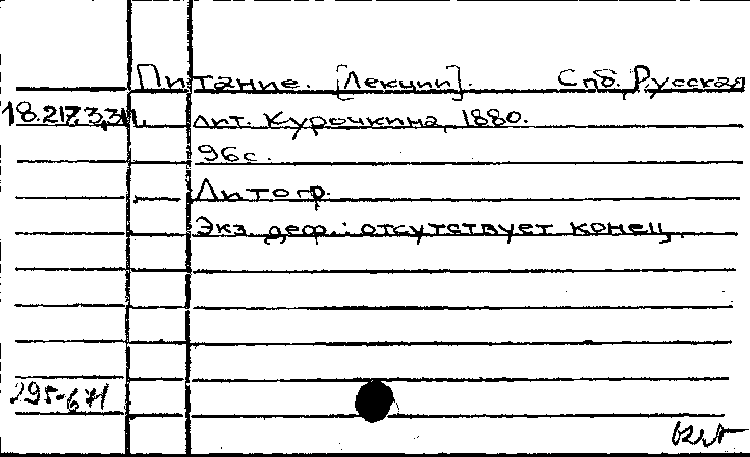 Питание. [Лекции]. Спб, Русская
лит. Курочкина, 1880.
96с.
Литогр.
Экз. деф.: отсутствует конец.
295-671